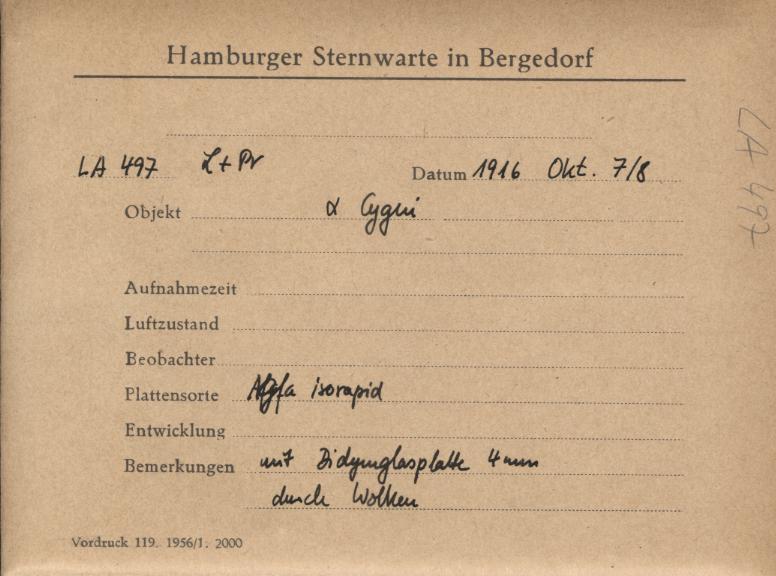 Hamburger Sternwarte in Bergedorf
LA 497 L + Pr Datum 1916 Okt. 7/8
Objekt α Cygni
Aufnahmezeit
Luftzustand
Beobachter
Plattensorte Agfa isorapid
Entwicklung
Bemerkungen mit Didymglasplatte 4 mm
durch Wolken
Vordruck 119. 1956/1. 2000
LA 497